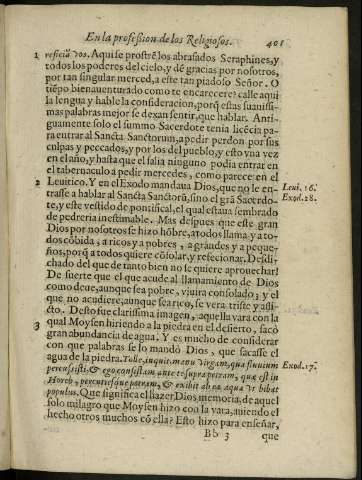 En la profession de los Religiosos. 401
1 reficiā vos. Aqui se prostrē los abrasados Seraphines, y
todos los poderes del cielo, y dē gracias por nosotros,
por tan singular merced, a este tan piadoso Señor. O
tiēpo bienauenturado como te encarecere? calle aqui
la lengua y hable la consideracion, porq̃ estas suauissi-
mas palabras mejor se dexan sentir, que hablar. Anti-
guamente solo el summo Sacerdote tenia licēcia pa-
ra entrar al Sancta Sanctorum, a pedir perdon por sus
culpas y peccados, y por los del pueblo, y esto vna vez
en el año, y hasta que el salia ninguno podia entrar en
el tabernaculo a pedir mercedes, como parece en el
2 Leuitico. Y en el Exodo mandaua Dios, que no le en- Leui. 16.
trasse a hablar al Sancta Sanctorū, sino el grā Sacerdo- Exod. 28.
te, y este vestido de pontifical, el qual estaua sembrado
de pedreria inestimable. Mas despues que este gran
Dios por nosotros se hizo hōbre, a todos llama y a to-
dos cōbida, a ricos y a pobres, a grandes y a peque-
ños, porq̃ a todos quiere cōsolar, y refecionar. Desdi-
chado del que de tanto bien no se quiere aprouechar!
De suerte que el que acude al llamamiento de Dios
como deue, aunque sea pobre, viuira consolado; y el
que no acudiere, aunque sea rico, se vera triste y afli-
cto. Desto fue clarissima imagen, aquella vara con la
3 qual Moysen hiriendo a la piedra en el desierto, sacò
gran abundancia de agua. Y es mucho de considerar
con que palabras se lo mandò Dios, que sacasse el
agua de la piedra. Tolle, inquit, manu Virgam, qua fluuium Exod. 17.
percussisti, & ego consistam ante te supra petram, quæ est in
Horeb, percutiesque petram, & exibit ab ea aqua vt bibat
populus. Que significa el hazer Dios memoria, de aquel
solo milagro que Moysen hizo con la vara, auiendo el
hecho otros muchos cō ella? Esto hizo para enseñar,
Bb 3 que